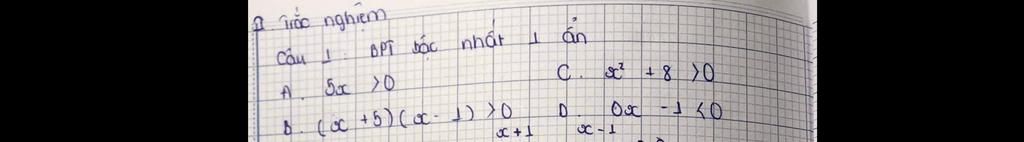 I Trắc nghiệm
Câu 1. BPT bậc nhất 1 ẩn
A. 5x >0 C. x² + 8 >0
B. (x +5)(x - 1) >0 D. 0x - 1 <0
x+1 x-1